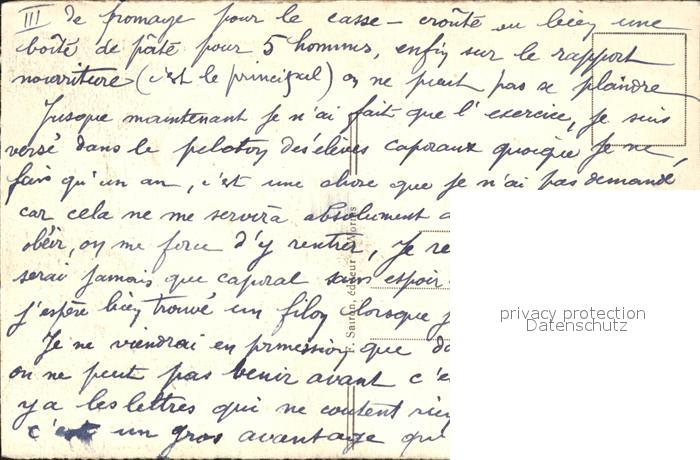 III de fromage pour le casse-croûte ou bien une
boîte de pâté pour 5 hommes, enfin sur le rapport
nourriture (c'est le principal) on ne peut pas se plaindre
Jusque maintenant je n'ai fait que l'exercice, je suis
versé dans le peloton des élèves caporaux quoique je ne
fais qu'un an, c'est une chose que je n'ai pas demandé
car cela ne me servira absolument a
obéir, on me force d'y rentrer, je re
serai jamais que caporal sans espoir
j'espère bien trouvé un filon lorsque j
Je ne viendrai en permission que da
on ne peut pas venir avant c'e
y a les lettres qui ne coutent rien
c'est un gros avantage qu
F. Sairan, éditeur Worms
privacy protection
Datenschutz